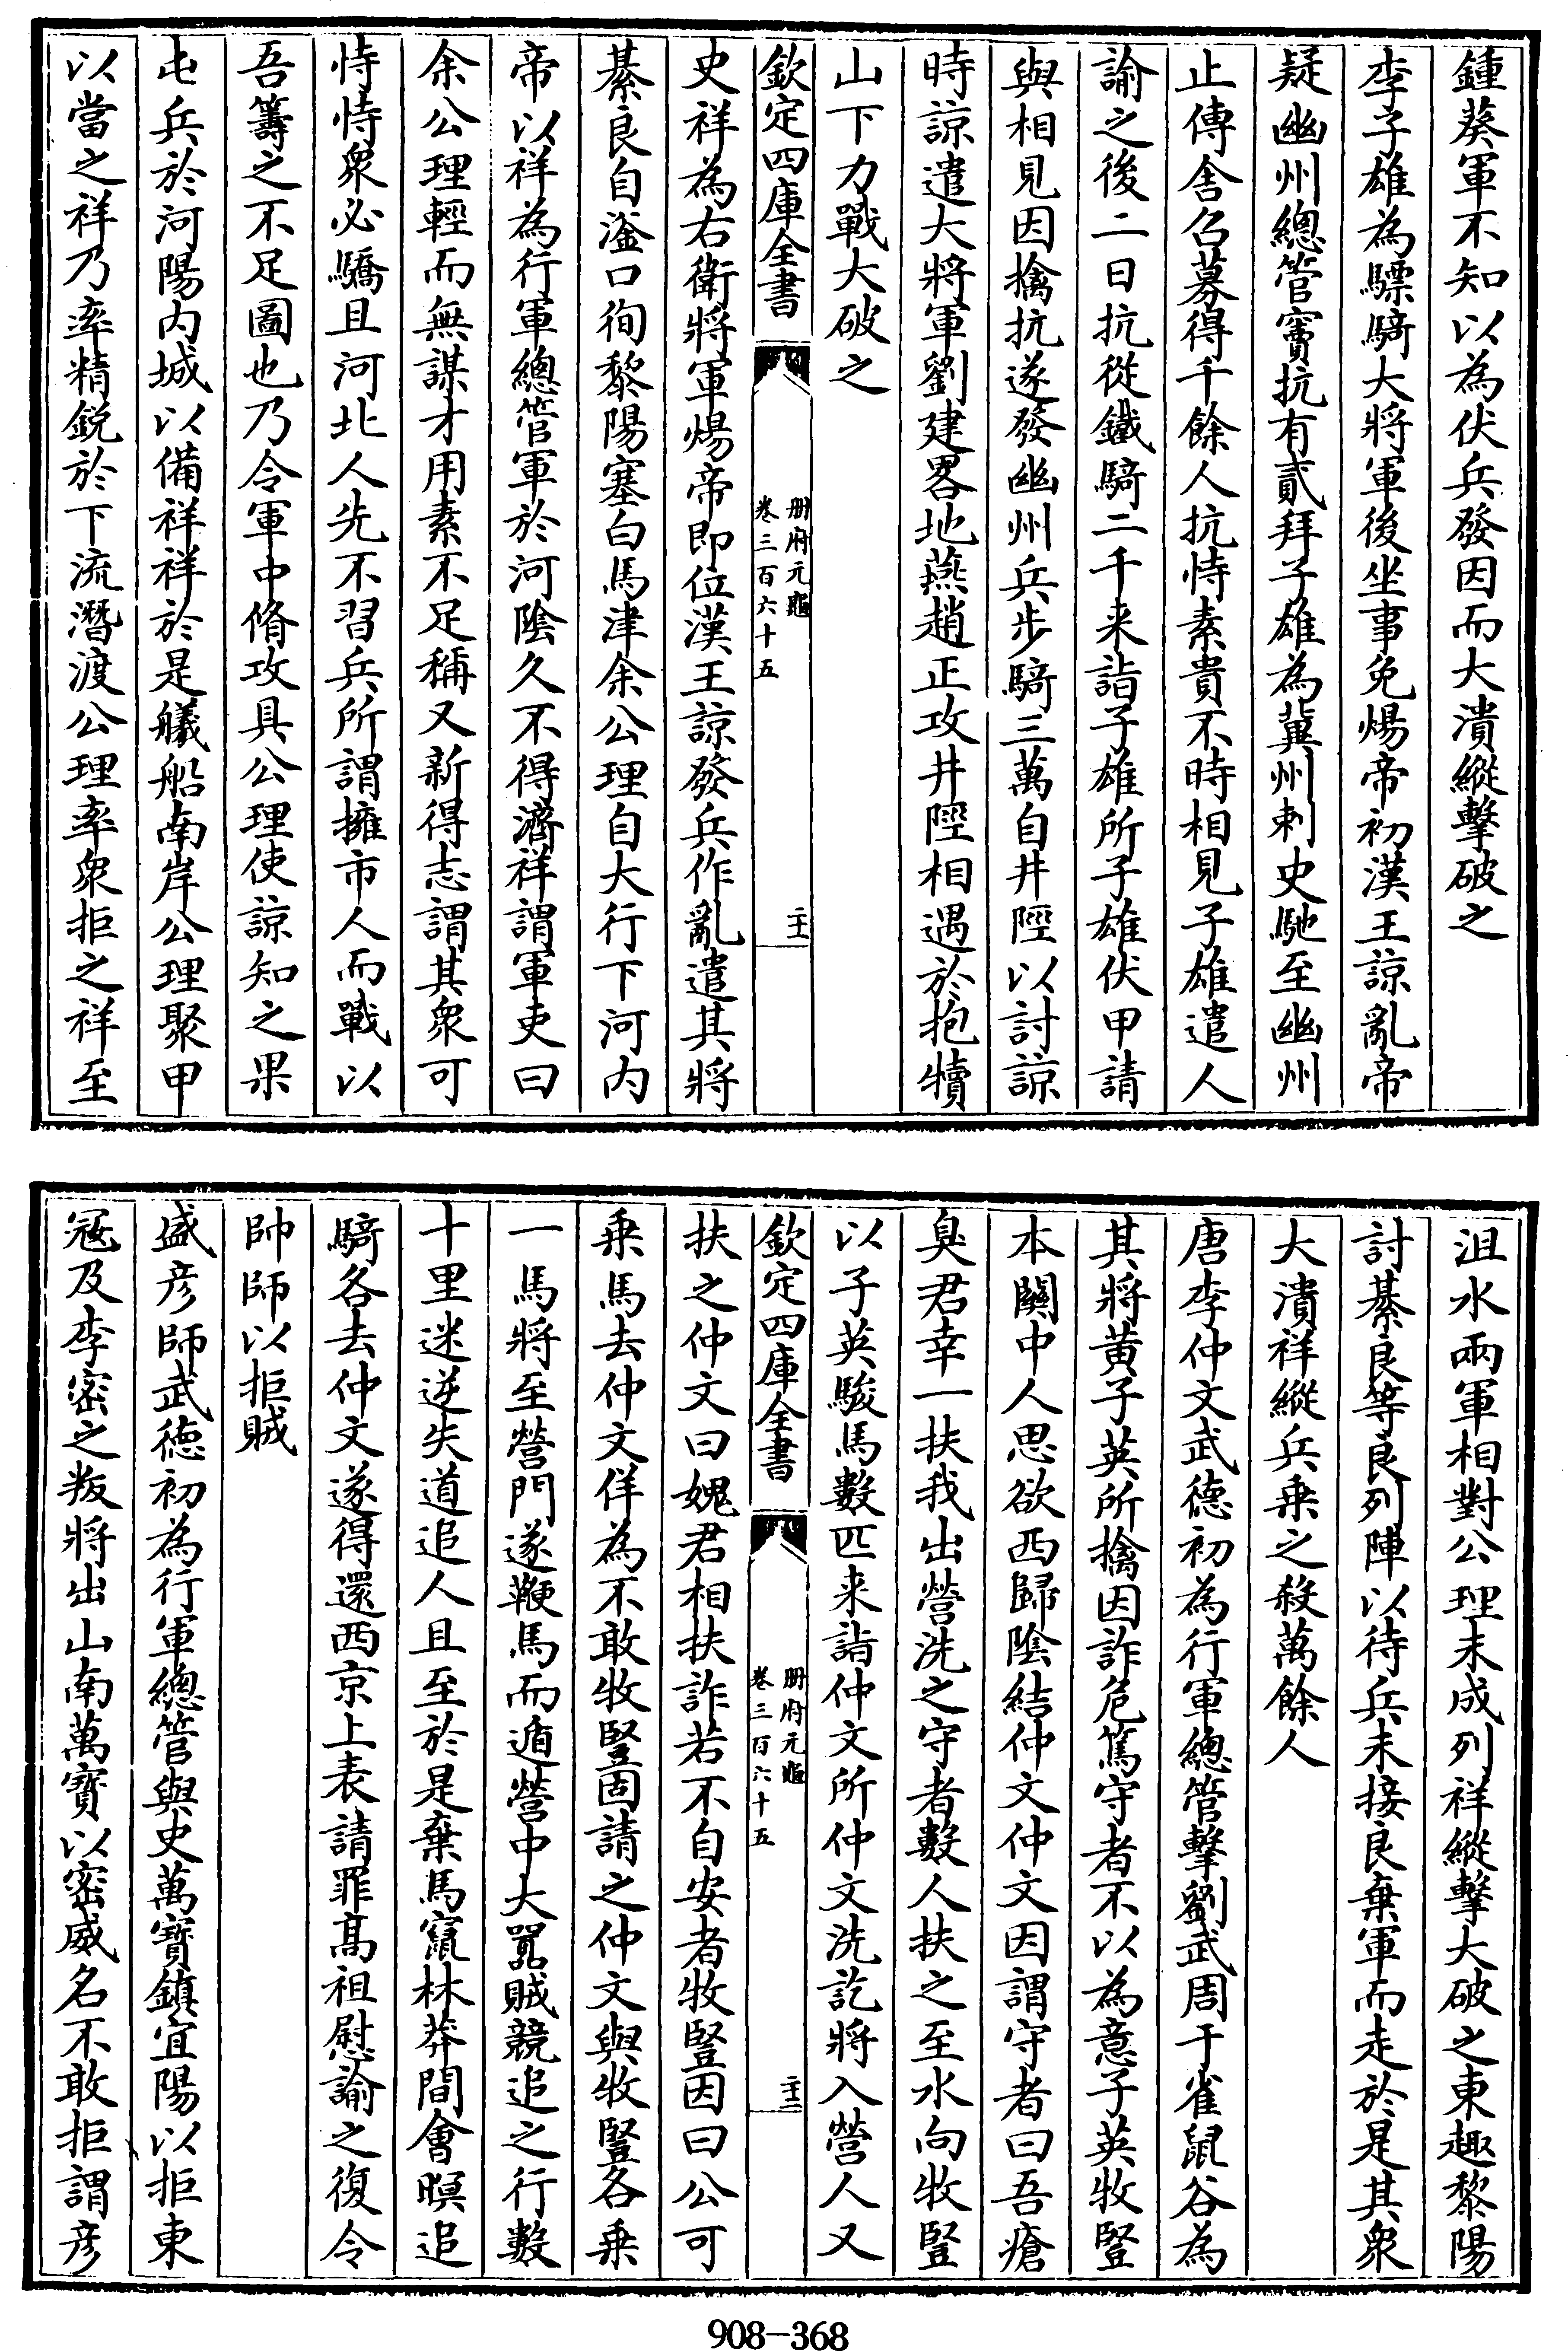 鍾葵軍不知以為伏兵發因而大潰縱擊破之
李子雄為驃騎大將軍後坐事免煬帝初漢王諒亂帝
疑幽州總管竇抗有貳拜子雄為冀州刺史馳至幽州
止傳舍召募得千餘人抗恃素貴不時相見子雄遣人
諭之後二日抗從鐵騎二千来詣子雄所子雄伏甲請
與相見因擒抗遂發幽州兵步騎三萬自井陘以討諒
時諒遣大將軍劉建畧地燕趙正攻井陘相遇於抱犢
山下力戰大破之
欽定四庫全書
册府元龜
卷三百六十五
二十一
史祥為右衛將軍煬帝即位漢王諒發兵作亂遣其將
綦良自滏口徇黎陽塞白馬津余公理自大行下河内
帝以祥為行軍總管軍於河陰久不得濟祥謂軍吏曰
余公理輕而無謀才用素不足稱又新得志謂其衆可
恃恃衆必驕且河北人先不習兵所謂擁市人而戰以
吾籌之不足圖也乃令軍中脩攻具公理使諒知之果
屯兵於河陽内城以備祥祥於是艤船南岸公理聚甲
以當之祥乃率精鋭於下流潛渡公理率衆拒之祥至
沮水兩軍相對公理未成列祥縱擊大破之東趣黎陽
討綦良等良列陣以待兵未接良棄軍而走於是其衆
大潰祥縱兵乗之殺萬餘人
唐李仲文武德初為行軍總管擊劉武周于雀鼠谷為
其將黄子英所擒因詐危篤守者不以為意子英牧豎
本關中人思欲西歸陰結仲文仲文因謂守者曰吾瘡
臭君幸一扶我出營洗之守者數人扶之至水向牧豎
以子英駿馬數匹来詣仲文所仲文洗訖將入營人又
欽定四庫全書
册府元龜
卷三百六十五
二十二
扶之仲文曰媿君相扶詐若不自安者牧豎因曰公可
乗馬去仲文佯為不敢牧豎固請之仲文與牧豎各乗
一馬將至營門遂鞭馬而遁營中大嚣賊競追之行數
十里迷逆失道追人且至於是棄馬竄林莽間會暝追
騎各去仲文遂得還西京上表請罪髙祖慰諭之復令
帥師以拒賊
盛彦師武徳初為行軍總管與史萬寶鎮宜陽以拒東
冦及李密之叛將出山南萬寶以密威名不敢拒謂彦
908-368